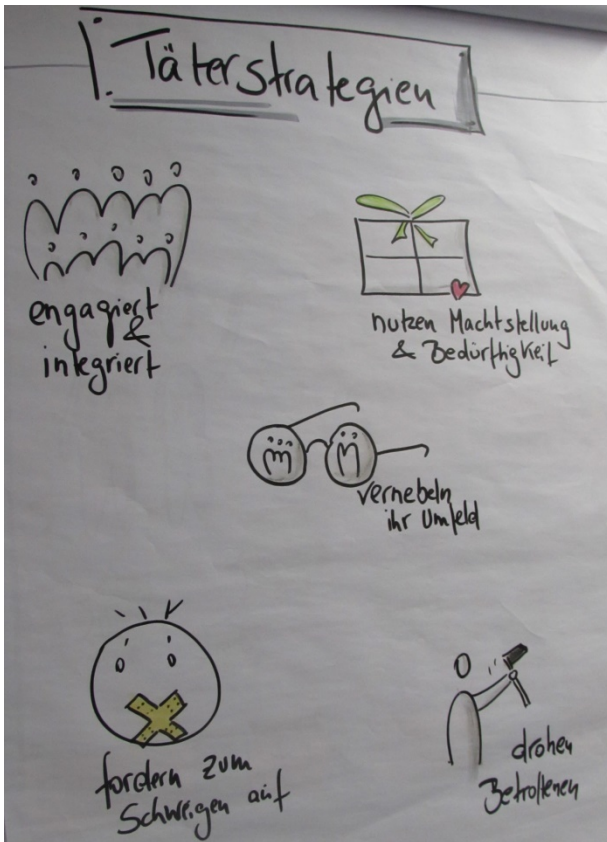 1. Täterstrategien
engagiert
&
integriert
nutzen Machtstellung
& Bedürftigkeit
vernebeln
ihr Umfeld
fordern zum
Schweigen auf
drohen
Betroffenen